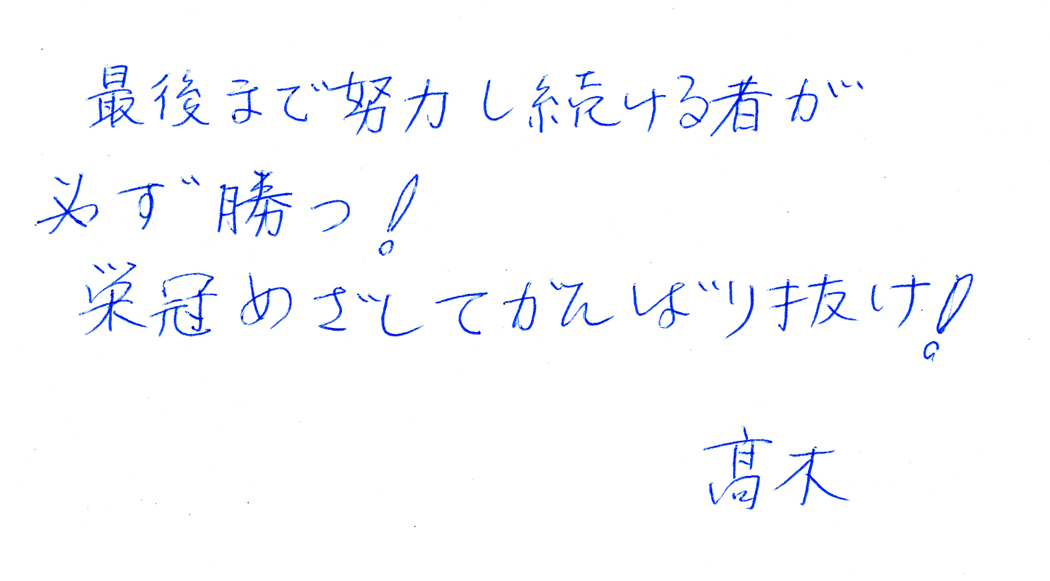 最後まで努力し続ける者が
必ず勝つ!
栄冠めざしてがんばり抜け!
髙木